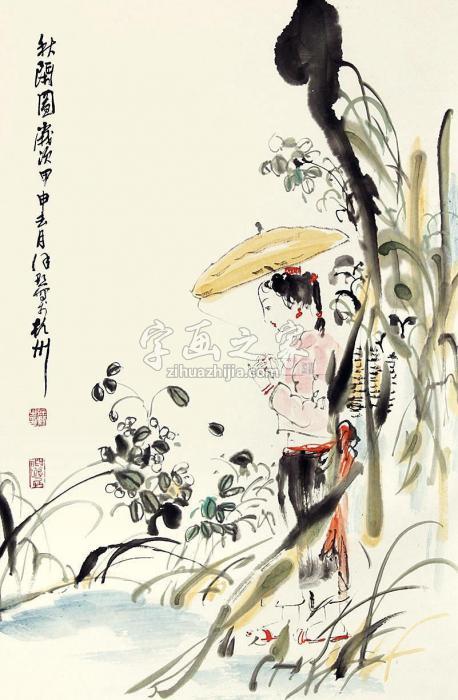 秋閑圖歲次甲申月寫于杭州
字画之家
zihuazhijia.com